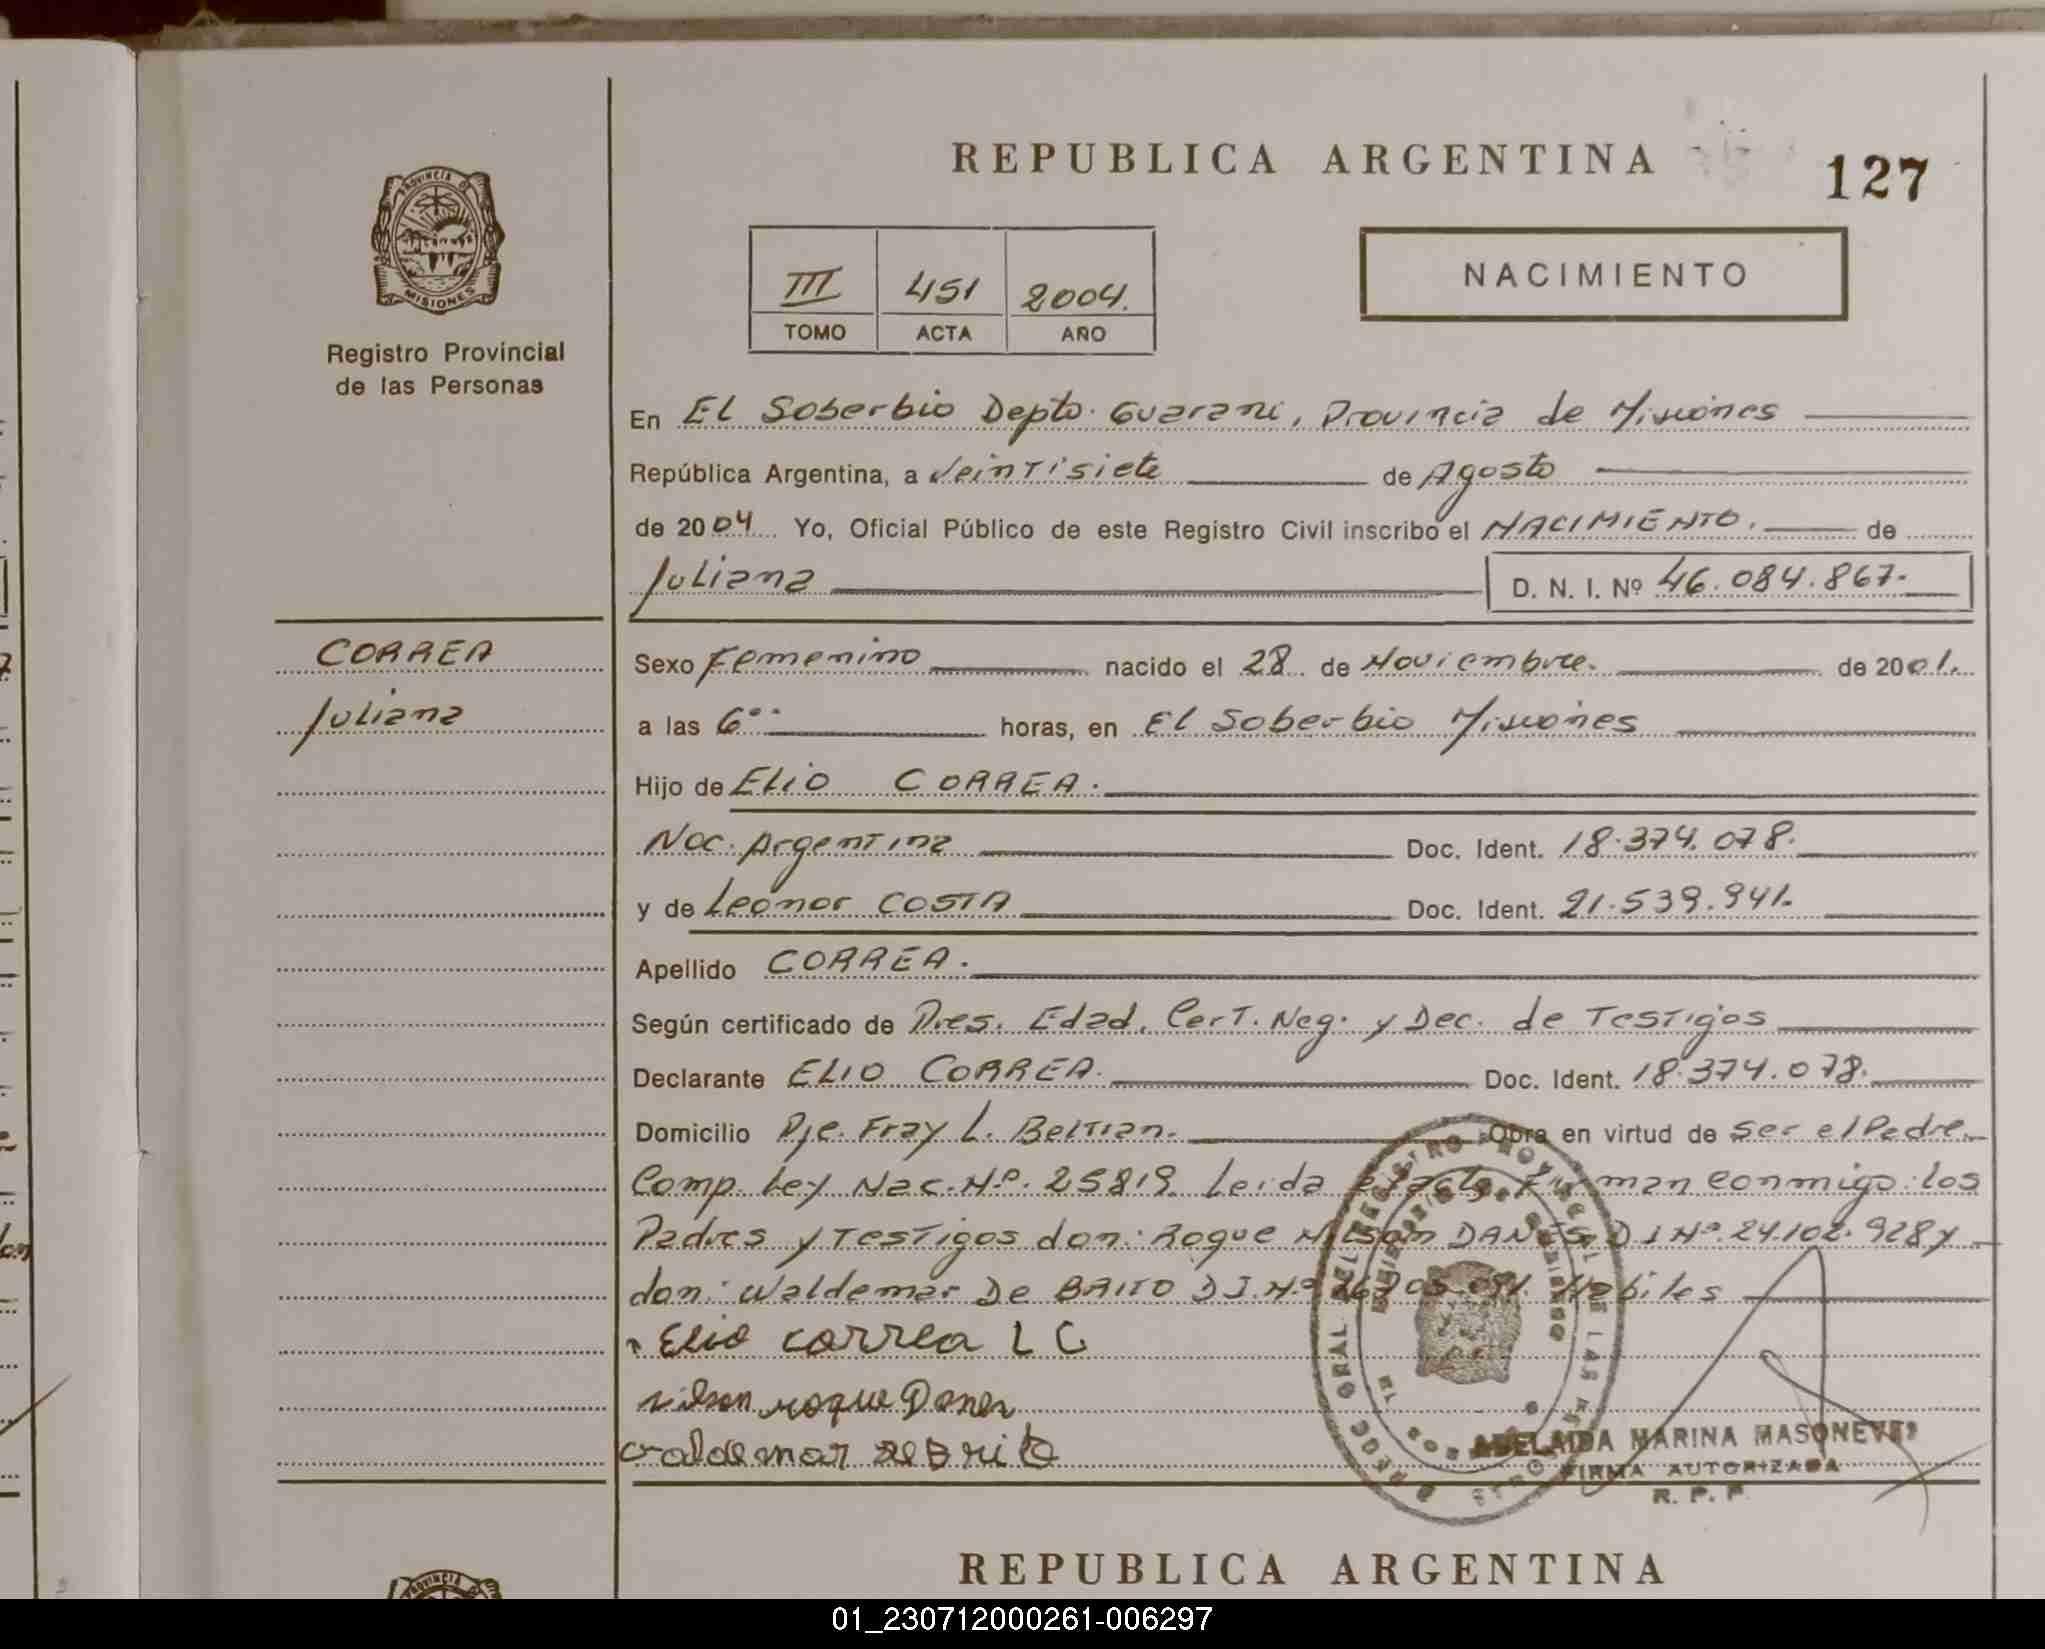 REPUBLICA ARGENTINA
127
PROVINCIA DE
MISIONES
Registro Provincial
de las Personas
III 451 2004.
TOMO ACTA AÑO
NACIMIENTO
En El Soberbio Depto. Guarani, Provincia de Misiones
República Argentina, a Veintisiete de Agosto
de 2004 Yo, Oficial Público de este Registro Civil inscribo el NACIMIENTO. de
Juliana D. N. I. Nº 46.084.867.
CORREA
Juliana
Sexo Femenino nacido el 28 de Noviembre. de 2001.
a las 6 horas, en El Soberbio Misiones
Hijo de Elio CORREA.
Nac. Argentina Doc. Ident. 18.374.078.
y de Leonor COSTA Doc. Ident. 21.539.941.
Apellido CORREA.
Según certificado de Pres. Edad, Cert. Neg. y Dec. de Testigos
Declarante ELIO CORREA. Doc. Ident. 18.374.078.
Domicilio Pje. Fray L. Beltran. Obra en virtud de ser el Padre.
Comp. Ley Nac. Nº. 25819. Leida el acta, Firman conmigo: los
Padres y Testigos don: Roque Nilson DANES D I Nº. 24.102.928 y
don: Waldemar De BRITO D.I. Nº Habiles
Elio correa L C
nilson roque Danes
valdemar de Brito
ADELAIDA MARINA MASONEVE
FIRMA AUTORIZADA
R. P. P.
REPUBLICA ARGENTINA
PROVINCIA
01_230712000261-006297